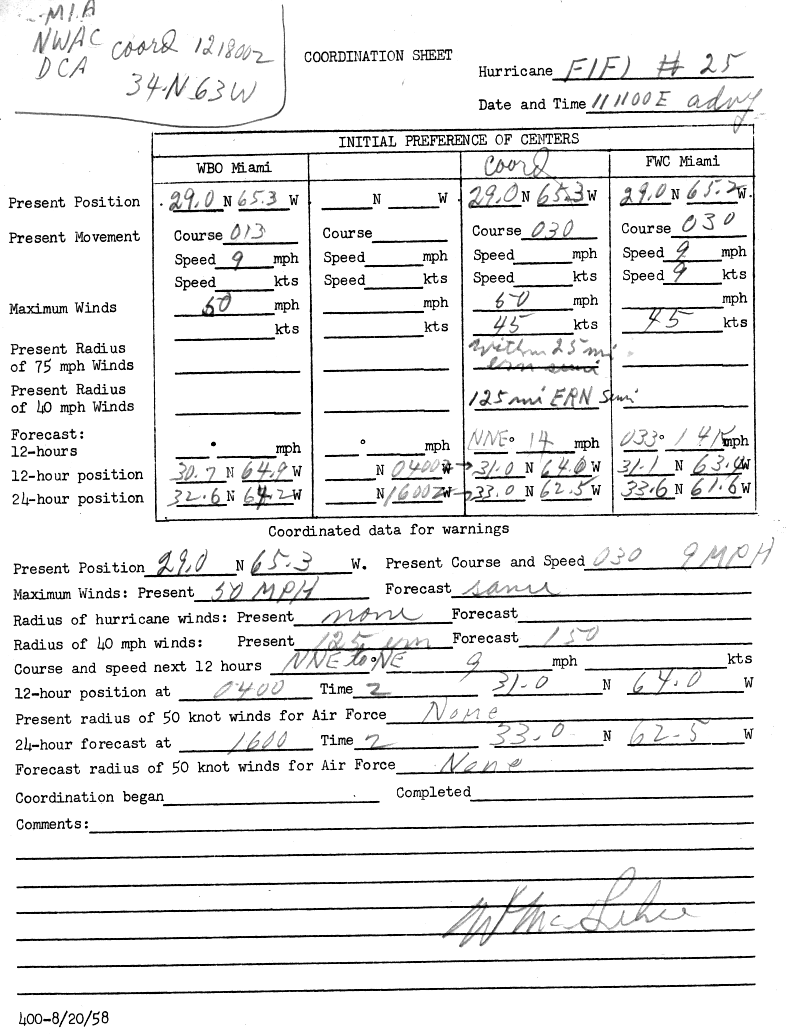 MIA
NWAC coord 121800Z
DCA
34-N 63W
COORDINATION SHEET
Hurricane FIFI # 25
Date and Time 111100E advy
INITIAL PREFERENCE OF CENTERS
WBO Miami coord FWC Miami
Present Position 29.0 N 65.3 W N W 29.0 N 65.3 W 29.0 N 65.2 W.
Present Movement Course 013 Course Course 030 Course 030
Speed 9 mph Speed mph Speed mph Speed 9 mph
Speed kts Speed kts Speed kts Speed 9 kts
Maximum Winds mph mph mph mph
kts kts 45 kts 45 kts
Present Radius
of 75 mph Winds within 25 mi
Present Radius
of 40 mph Winds 125 mi ERN semi
Forecast:
12-hours ° mph ° mph NNE° 14 mph 033° 14 mph
12-hour position 30.7 N 64.9 W N 0400Z W → 31.0 N 64.0 W 31.1 N 63.4 W
24-hour position 32.6 N 64.2 W N 1600Z W → 33.0 N 62.5 W 33.6 N 61.6 W
Coordinated data for warnings
Present Position 29.0 N 65.3 W. Present Course and Speed 030 9 MPH
Maximum Winds: Present 50 MPH Forecast same
Radius of hurricane winds: Present none Forecast
Radius of 40 mph winds: Present 125 Forecast 150
Course and speed next 12 hours NNE to NE 9 mph kts
12-hour position at 0400 Time Z 31.0 N 64.0 W
Present radius of 50 knot winds for Air Force None
24-hour forecast at 1600 Time Z 33.0 N 62.5 W
Forecast radius of 50 knot winds for Air Force None
Coordination began Completed
Comments:
400-8/20/58